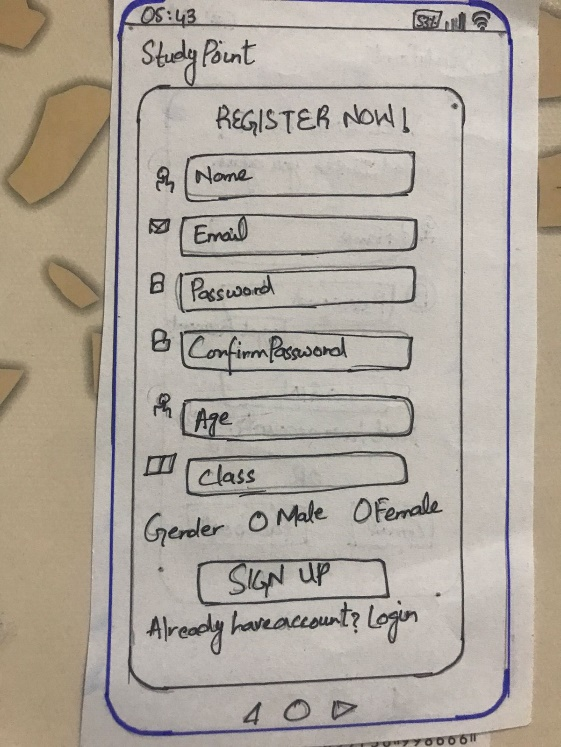 05:43 53%
Study Point
REGISTER NOW!
Name
Email
Password
Confirm Password
Age
Class
Gender O Male O Female
SIGN UP
Already have account? Login